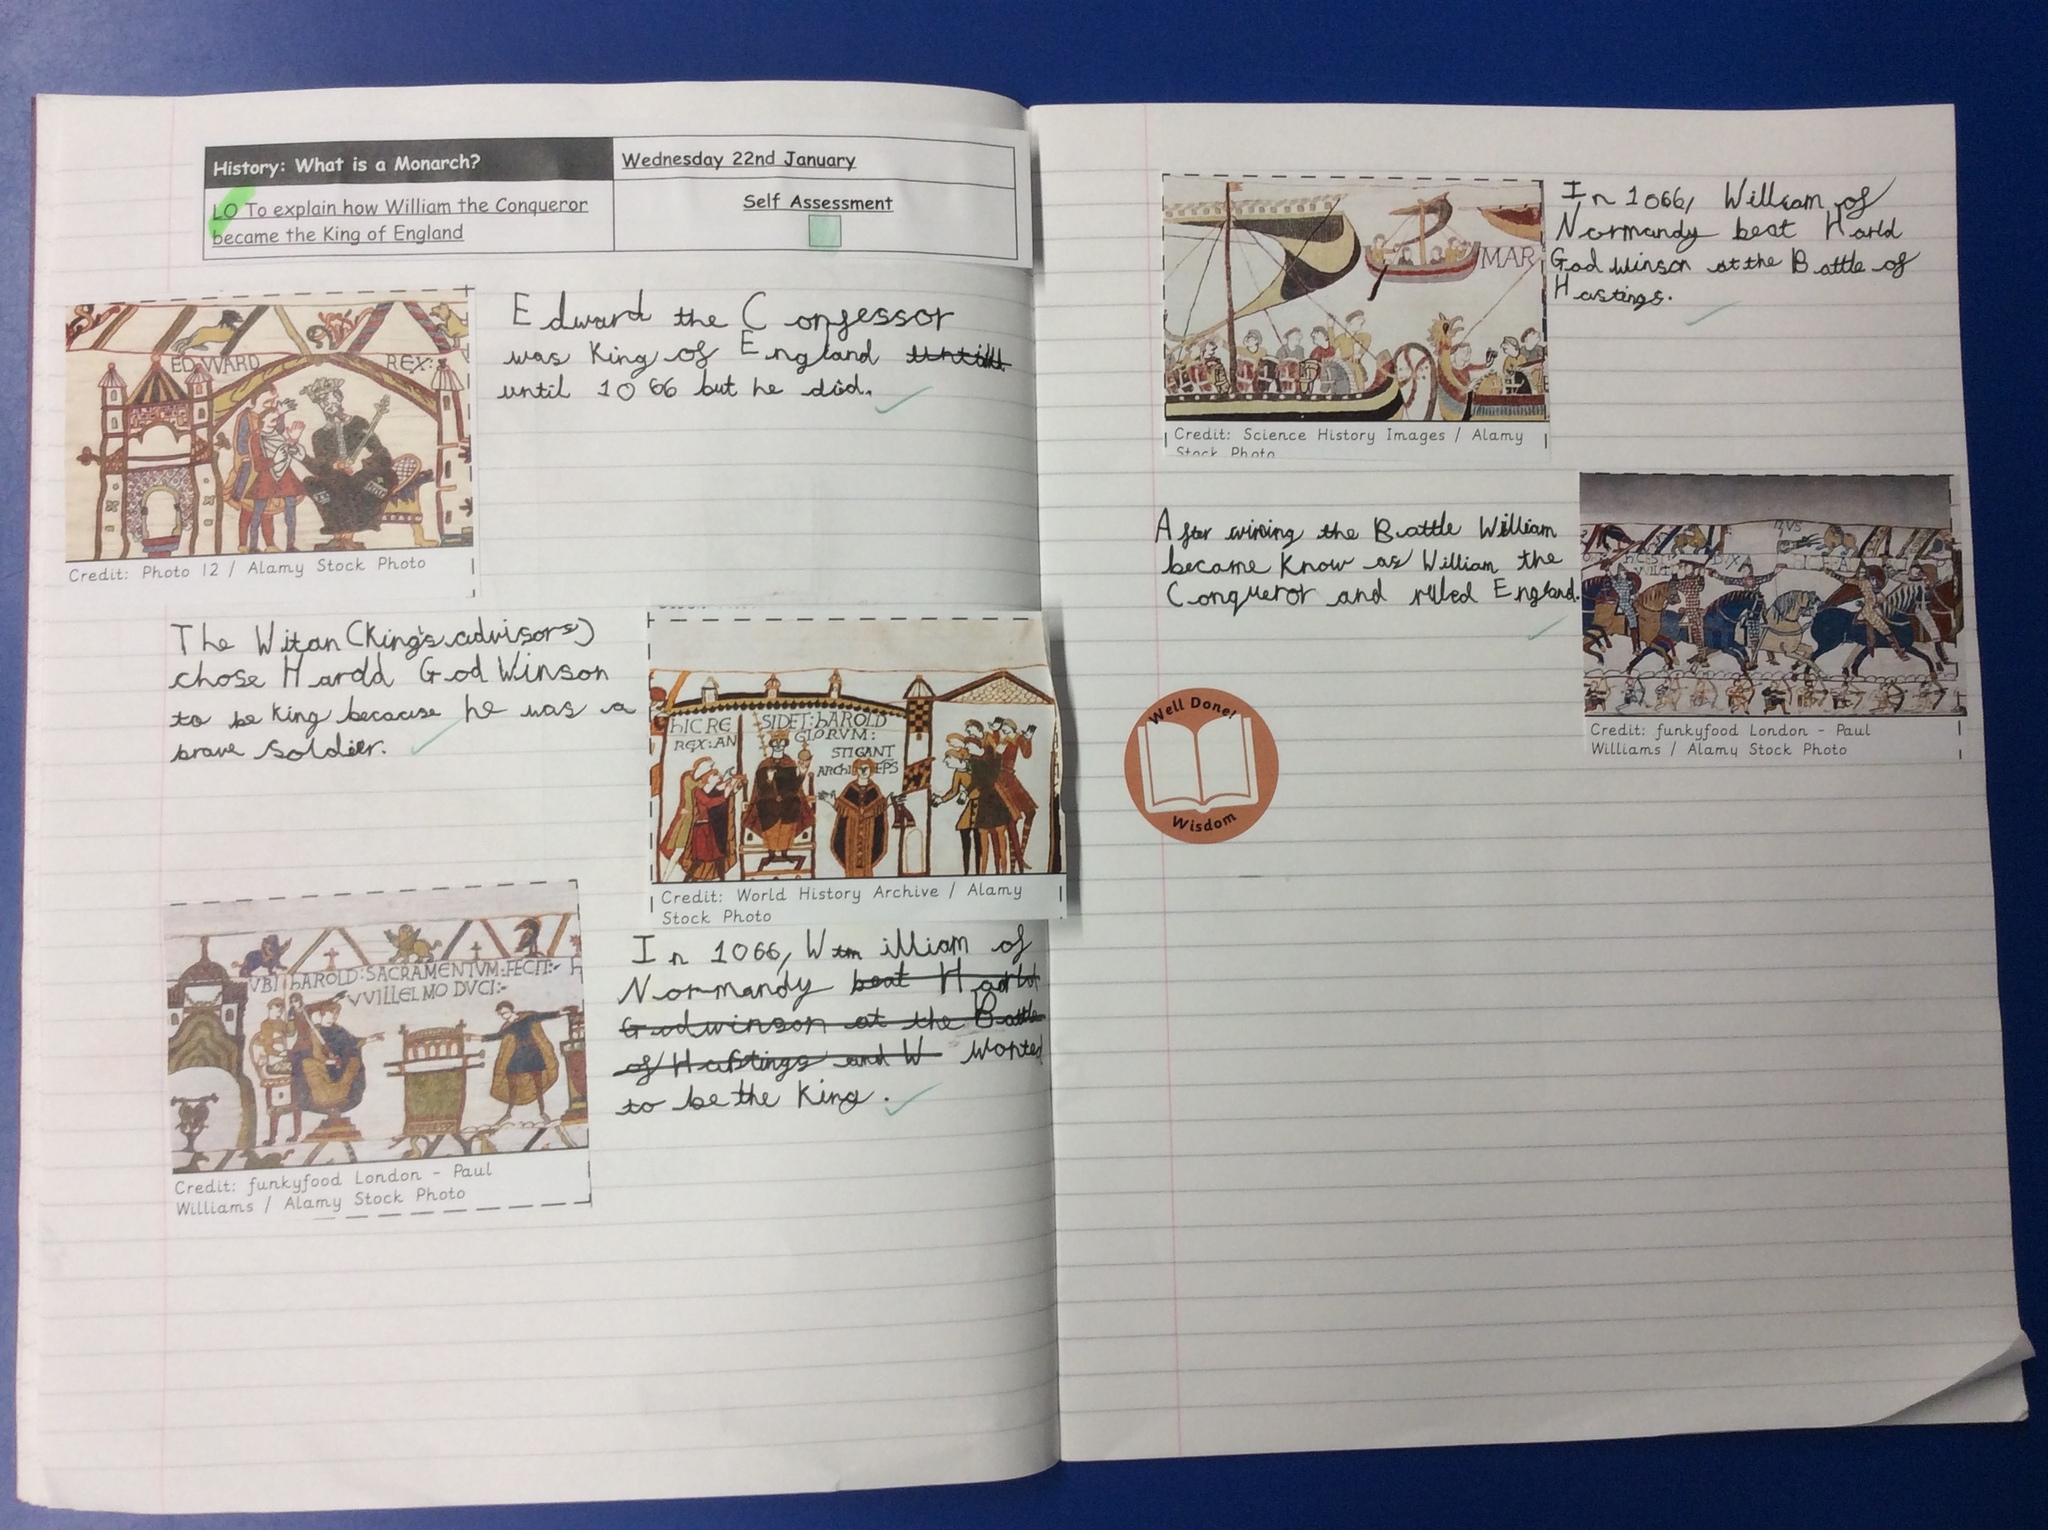 History: What is a Monarch?
Wednesday 22nd January
LO To explain how William the Conqueror
became the King of England
Self Assessment
EDWARD REX:
Credit: Photo 12 / Alamy Stock Photo
Edward the Confessor
was King of England untill
until 1066 but he did.
The Witan (King's advisors)
chose Harold God Winson
to be King because he was a
brave soldier.
HIC RE SIDET: hAROLD
REX: AN GLORVM:
STIGANT
ARCHI EPS
Credit: World History Archive / Alamy
Stock Photo
VBI hAROLD: SACRAMENTVM: FECIT:
VVILLELMO DVCI:
Credit: funkyfood London - Paul
Williams / Alamy Stock Photo
In 1066, William of
Normandy beat Harld
Godwinson at the Battle
of Hastings and W wonted
to be the King.
MAR
Credit: Science History Images / Alamy
Stock Photo
In 1066, William of
Normandy beat Harld
God winson at the Battle of
Hastings.
After wining the Battle William
became Know as William the
Conqueror and ruled England.
Credit: funkyfood London - Paul
Williams / Alamy Stock Photo
Well Done!
Wisdom